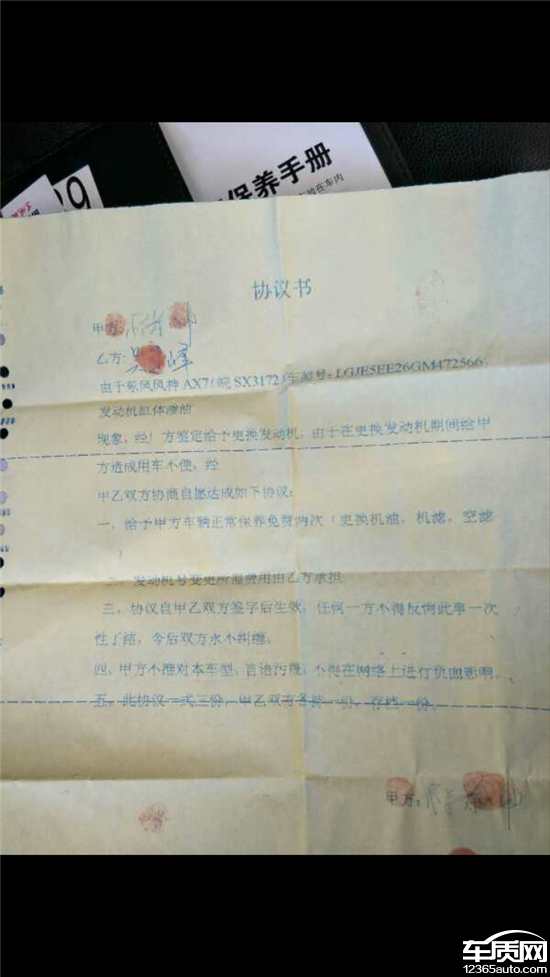 保养手册
放在车内
协议书
甲方：
乙方：
由于东风风神AX7（皖SX3172）车架号：LGJE5EE26GM472566，
发动机缸体渗油
现象，经厂方鉴定给予更换发动机，由于在更换发动机期间给甲
方造成用车不便，经
甲乙双方协商自愿达成如下协议：
一，给予甲方车辆正常保养免费两次（更换机油，机滤，空滤
）
二，发动机号变更所需费用由乙方承担
三，协议自甲乙双方签字后生效，任何一方不得反悔此事一次
性了结，今后双方永不纠缠。
四，甲方不准对本车型，言语污蔑，不得在网络上进行负面影响。
五，此协议一式三份，甲乙双方各持一份，存档一份。
甲方：
车质网
12365auto.com